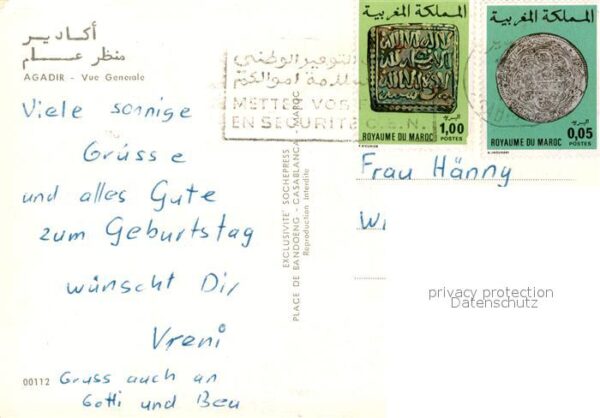 أكادير
منظر عـــام
AGADIR - Vue Generale
Viele sonnige
Grüsse
und alles Gute
zum Geburtstag
wünscht Dir
Vreni
00112
Gruss auch an
Gotti und Beu
EXCLUSIVITÉ SOCHEPRESS
PLACE DE BANDOENG - CASABLANCA - MAROC
Reproduction interdite
التوفير الوطني
سلامة اموالكم
METTEZ VOS
EN SECURITE C.E.N.
المملكة المغربية
1,00
ROYAUME DU MAROC POSTES
المملكة المغربية
البريد
0,05
ROYAUME DU MAROC POSTES
Frau Hänny
Wi
privacy protection
Datenschutz